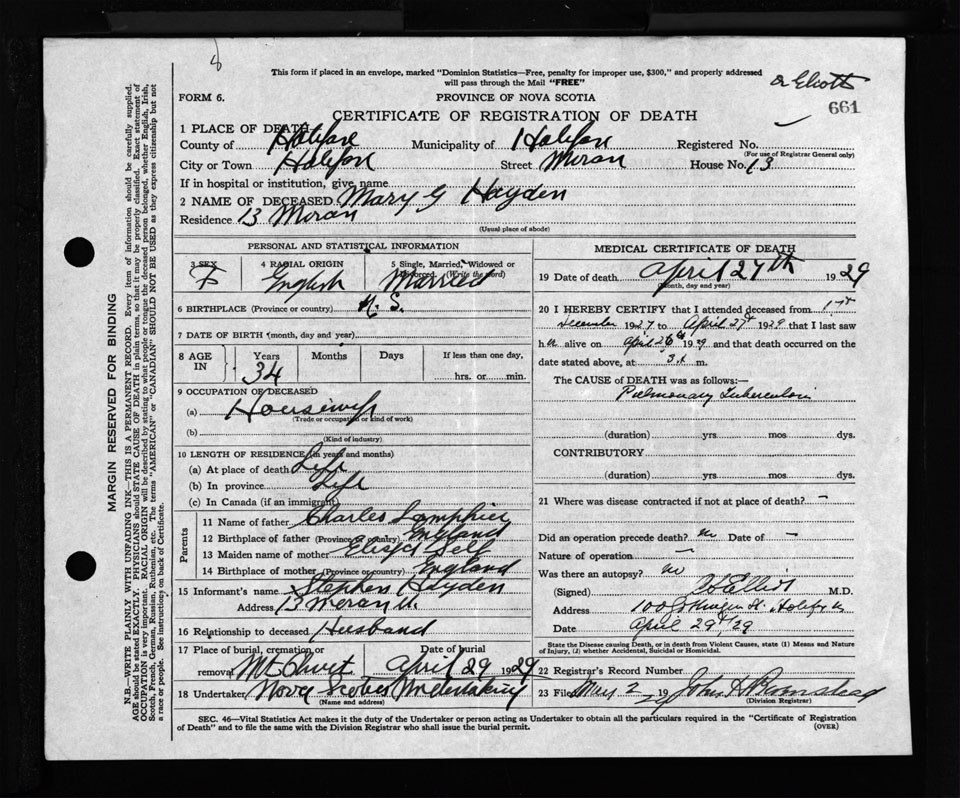 This form if placed in an envelope, marked "Dominion Statistics—Free, penalty for improper use, $300," and properly addressed
will pass through the Mail "FREE"
Dr Eliott
FORM 6.
PROVINCE OF NOVA SCOTIA
661
CERTIFICATE OF REGISTRATION OF DEATH
1 PLACE OF DEATH
County of Halifax Municipality of Halifax Registered No.
(For use of Registrar General only)
City or Town Halifax Street Moran House No. 13
If in hospital or institution, give name
2 NAME OF DECEASED Mary G Hayden
Residence 13 Moran
(Usual place of abode)
PERSONAL AND STATISTICAL INFORMATION
3 SEX 4 RACIAL ORIGIN 5 Single, Married, Widowed or
Divorced. (Write the word)
F English Married
6 BIRTHPLACE (Province or country) N. S.
7 DATE OF BIRTH (month, day and year)
8 AGE IN Years Months Days If less than one day,
34 hrs. or min.
9 OCCUPATION OF DECEASED
(a) Housewife
(Trade or occupation or kind of work)
(b)
(Kind of industry)
10 LENGTH OF RESIDENCE (in years and months)
(a) At place of death Life
(b) In province Life
(c) In Canada (if an immigrant)
Parents
11 Name of father Charles Lamphier
12 Birthplace of father (Province or country) England
13 Maiden name of mother Self
14 Birthplace of mother (Province or country) England
15 Informant's name Stephen Hayden
Address 13 Moran St.
16 Relationship to deceased Husband
17 Place of burial, cremation or Date of burial
removal Mt Olivet April 29 1929
18 Undertaker Nova Scotia Undertaking
(Name and address)
MEDICAL CERTIFICATE OF DEATH
19 Date of death April 27th 1929
(month, day and year)
20 I HEREBY CERTIFY that I attended deceased from 1st
December 1927 to April 27 1929 that I last saw
her alive on April 26th 1929 and that death occurred on the
date stated above, at 3 a m.
The CAUSE OF DEATH was as follows:—
Pulmonary Tuberculosis
(duration) yrs mos dys.
CONTRIBUTORY
(duration) yrs mos dys.
21 Where was disease contracted if not at place of death? —
Did an operation precede death? no Date of —
Nature of operation —
Was there an autopsy? no
(Signed) Elliott M.D.
Address Halifax
Date April 29th, 29
State the Disease causing Death, or in death from Violent Causes, state (1) Means and Nature
of Injury, (2) whether Accidental, Suicidal or Homicidal.
22 Registrar's Record Number
23 Filed May 2 1929 John
(Division Registrar)
SEC. 46—Vital Statistics Act makes it the duty of the Undertaker or person acting as Undertaker to obtain all the particulars required in the "Certificate of Registration
of Death" and to file the same with the Division Registrar who shall issue the burial permit.
(OVER)
MARGIN RESERVED FOR BINDING
N.B.—WRITE PLAINLY WITH UNFADING INK—THIS IS A PERMANENT RECORD. Every item of information should be carefully supplied.
AGE should be stated EXACTLY. PHYSICIANS should STATE CAUSE OF DEATH in plain terms, so that it may be properly classified. Exact statement of
OCCUPATION is very important. RACIAL ORIGIN will be described by stating to what people or tongue the deceased person belonged, whether English, Irish,
Scotch, French, German, Russian, Ruthenian, etc. The terms "AMERICAN" or "CANADIAN" SHOULD NOT BE USED as they express citizenship but not
a race or people. See instructions on back of Certificate.